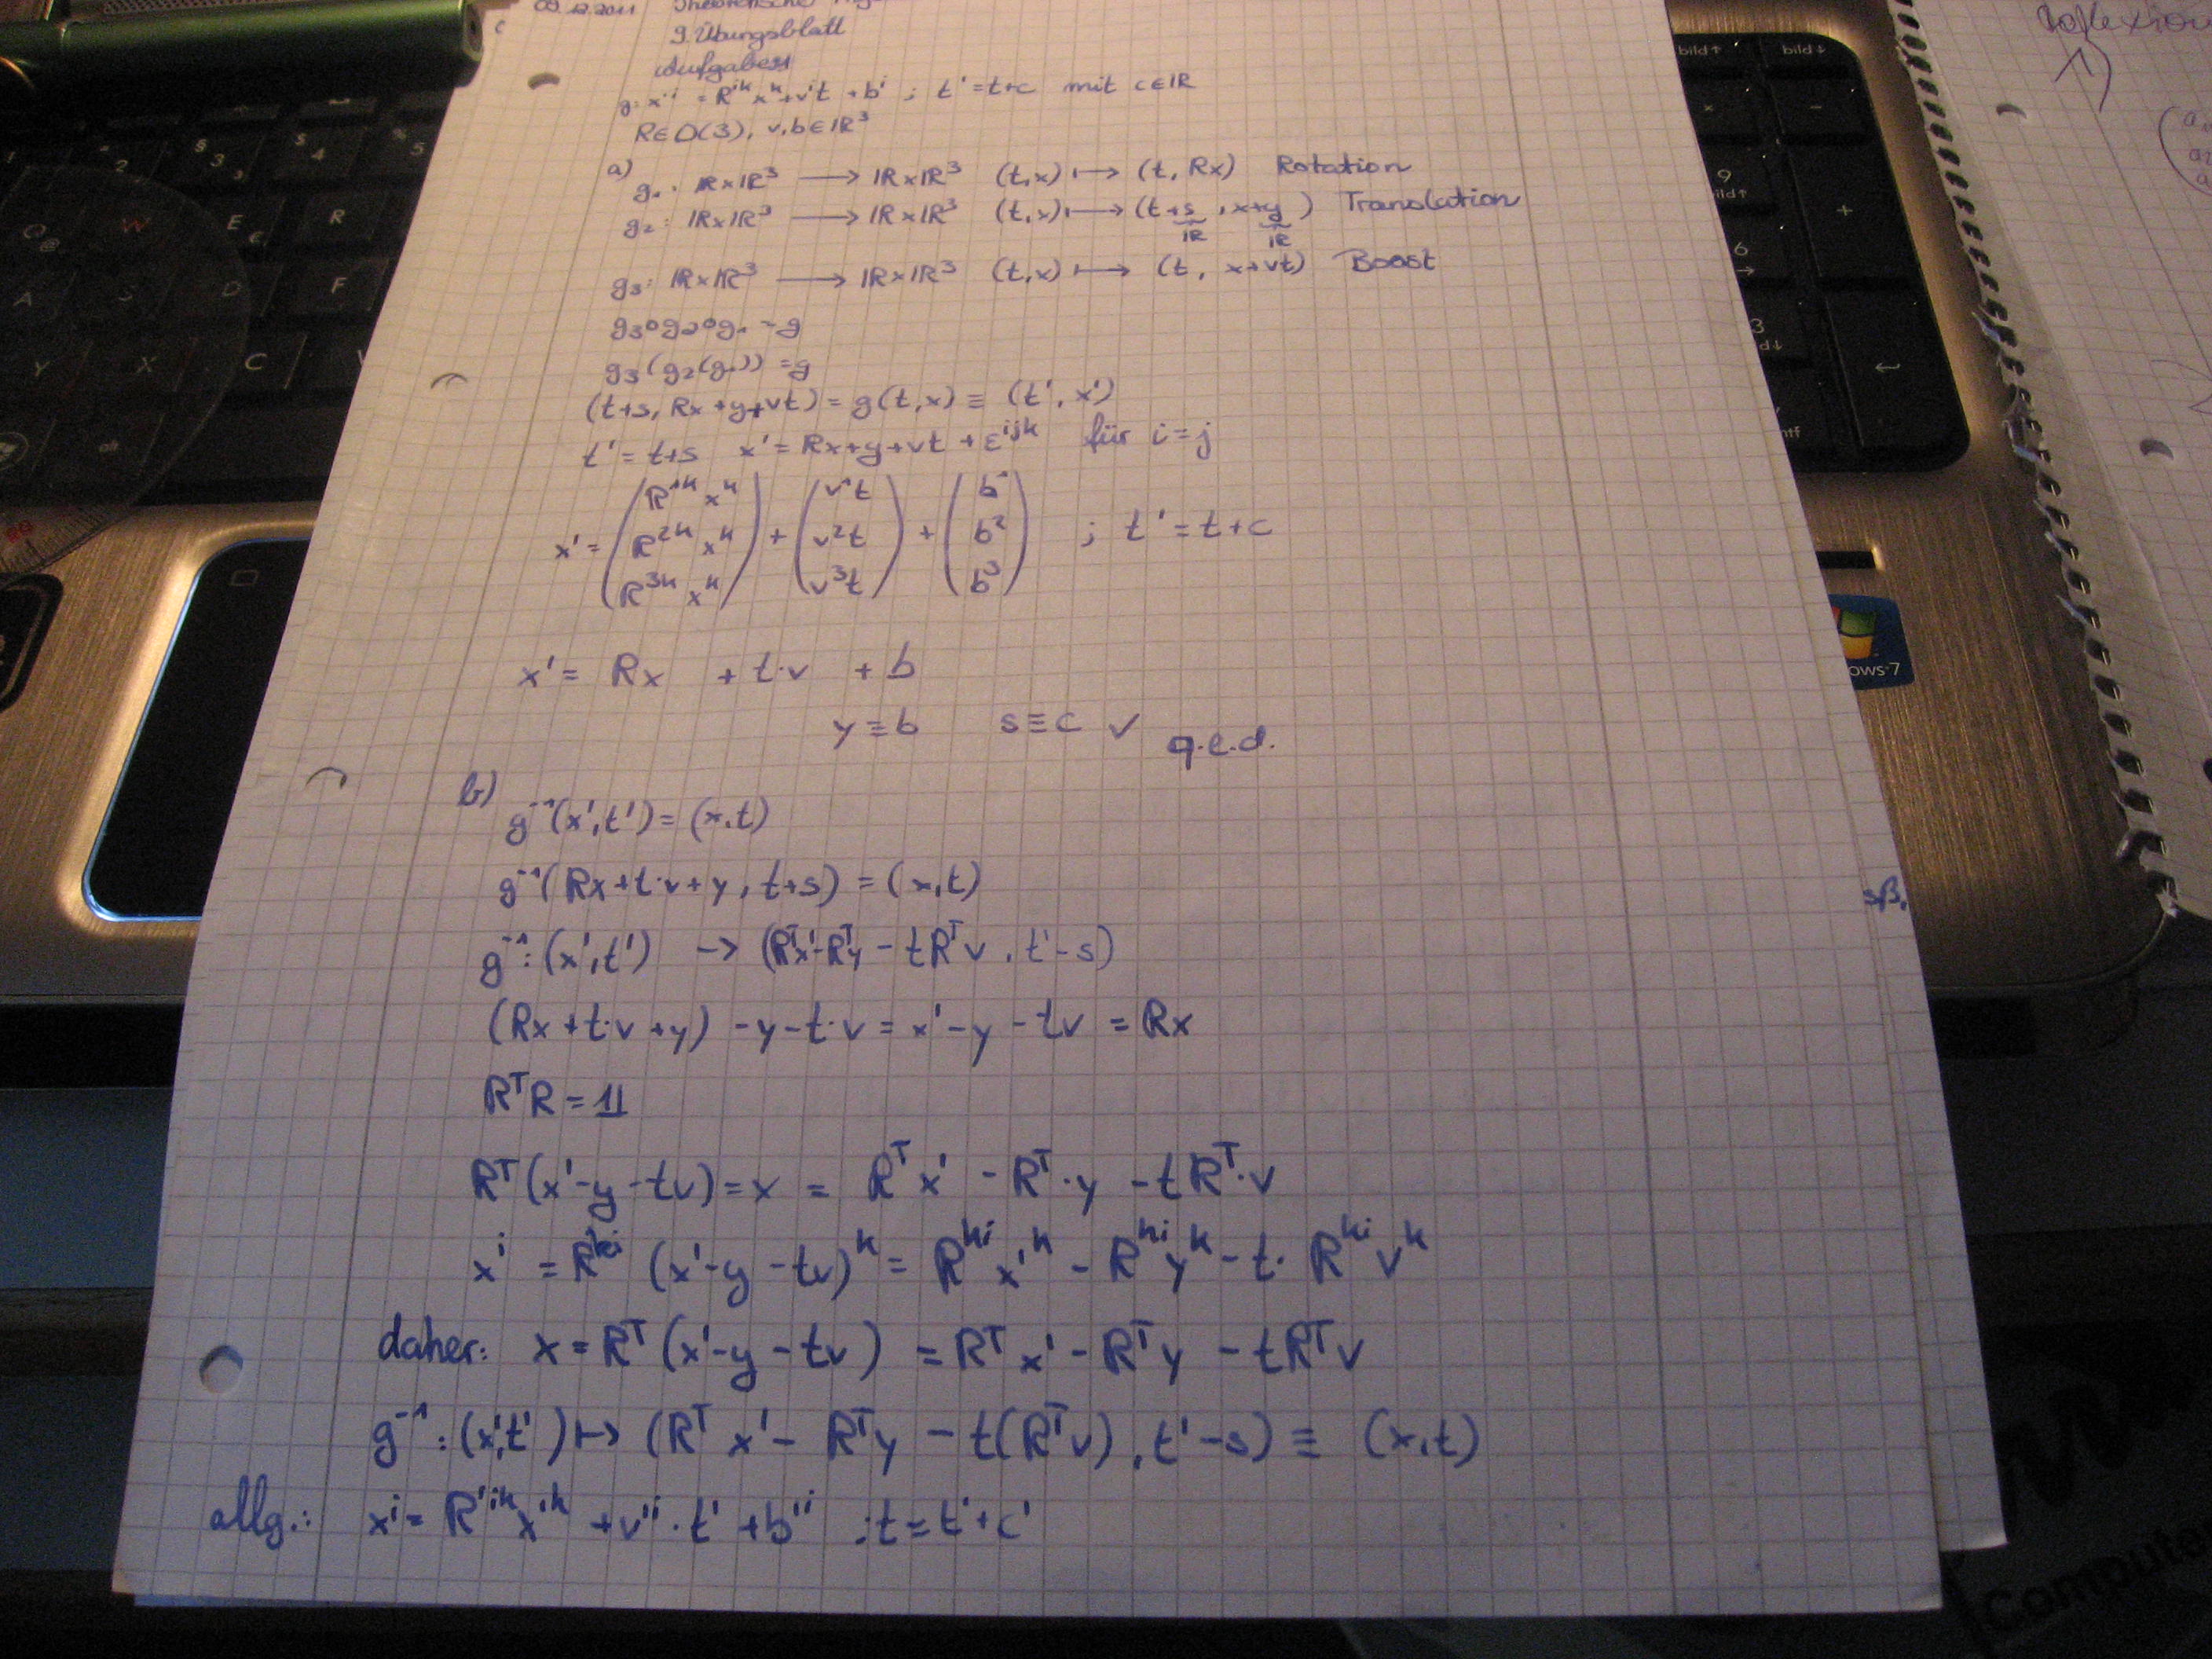 9. Übungsblatt
Aufgabe
g: x'ⁱ = Rⁱᵏxᵏ+vⁱt + bⁱ ; t' = t+c mit c∈ℝ
R∈O(3), v,b∈ℝ³
a)
g₁: ℝ×ℝ³ ⟶ ℝ×ℝ³ (t,x) ⟼ (t, Rx) Rotation
g₂: ℝ×ℝ³ ⟶ ℝ×ℝ³ (t,x) ⟼ (t+s, x+y) Translation
ℝ ℝ
g₃: ℝ×ℝ³ ⟶ ℝ×ℝ³ (t,x) ⟼ (t, x+vt) Boost
g₃∘g₂∘g₁ = g
g₃(g₂(g₁)) = g
(t+s, Rx+y+vt) = g(t,x) ≡ (t', x')
t' = t+s x' = Rx+y+vt + εⁱʲᵏ für i=j
x' = (R¹ᵏxᵏ R²ᵏxᵏ R³ᵏxᵏ) + (v¹t v²t v³t) + (b¹ b² b³) ; t' = t+c
x' = Rx + t·v + b
y≡b s≡c ✓ q.e.d.
b)
g⁻¹(x',t') = (x,t)
g⁻¹(Rx+t·v+y, t+s) = (x,t)
g⁻¹: (x',t') → (Rᵀx'-Rᵀy - tRᵀv, t'-s)
(Rx+t·v+y) -y-t·v = x'-y-tv = Rx
RᵀR = 𝟙
Rᵀ(x'-y-tv) = x = Rᵀx' - Rᵀ·y - tRᵀ·v
xⁱ = Rᵏⁱ (x'-y-tv)ᵏ = Rᵏⁱx'ᵏ - Rᵏⁱyᵏ - t·Rᵏⁱvᵏ
daher: x = Rᵀ(x'-y-tv) = Rᵀx' - Rᵀy - tRᵀv
g⁻¹: (x',t') ↦ (Rᵀx' - Rᵀy - t(Rᵀv), t'-s) ≡ (x,t)
allg.: xⁱ = R'ⁱᵏx'ᵏ + v'ⁱ·t' + b'ⁱ ; t = t'+c'
sβ,
bild↑
bild↓
Q
@
W
E
€
R
A
S
D
F
Y
X
C
2
§
3
$
4
5
9
6
3
+
-
ows 7
Compute